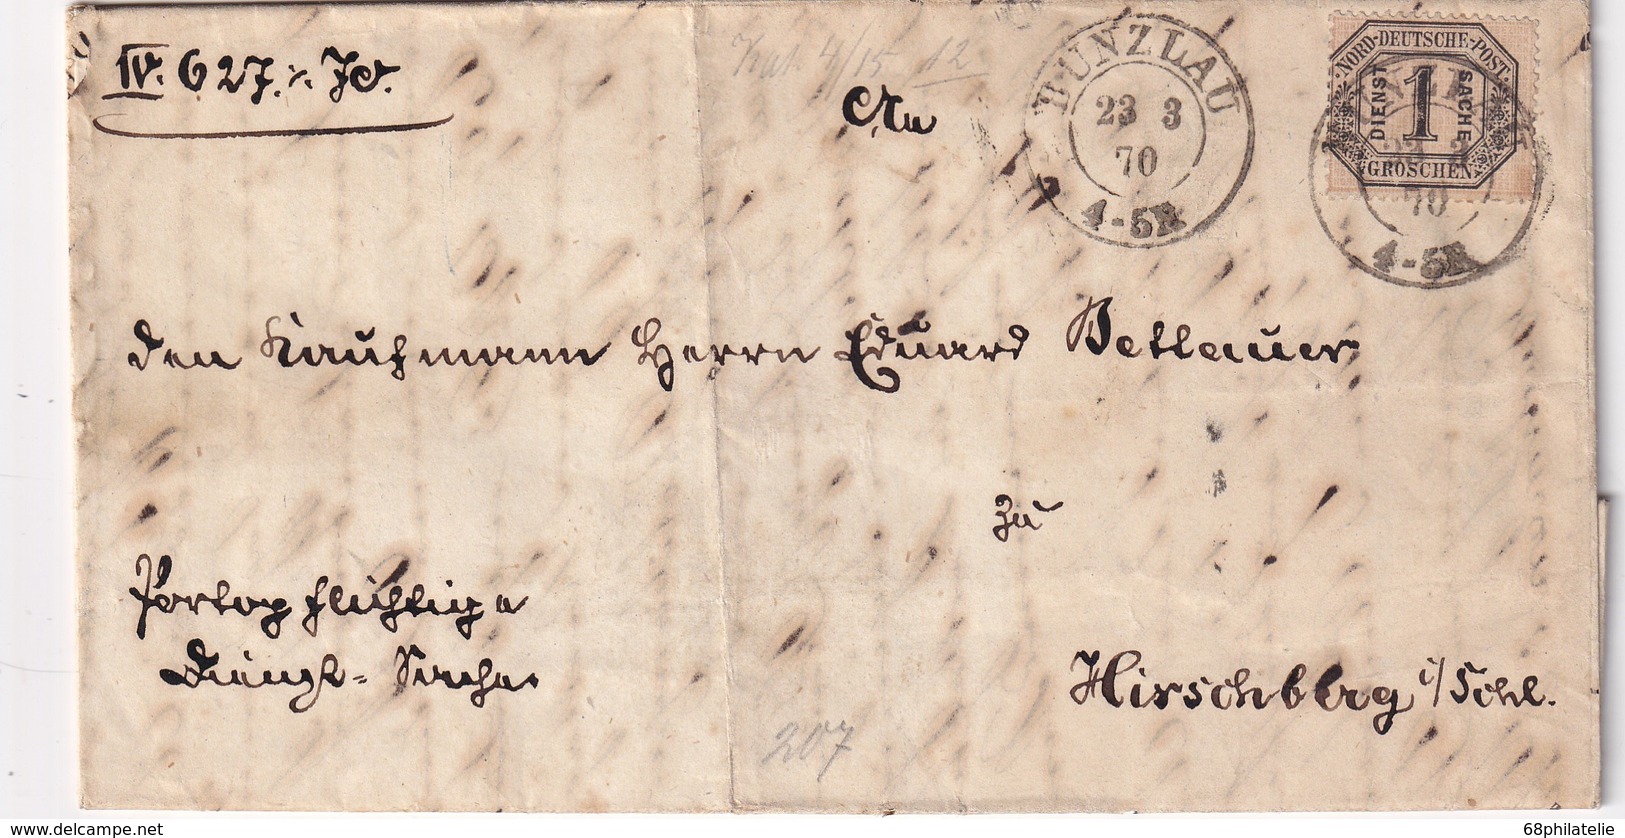 IV. 627. /. 70.
Kat 4/15 12
An
BUNZLAU
23 3
70
4-5N
NORD-DEUTSCHE-POST
DIENST 1 SACHE
GROSCHEN
70
4-5N
den Kaufmann Herrn Eduard Bettauer
zu
Portopflichtige
Dienst-Sache
Hirschberg i/Schl.
207
delcampe.net
68philatelie